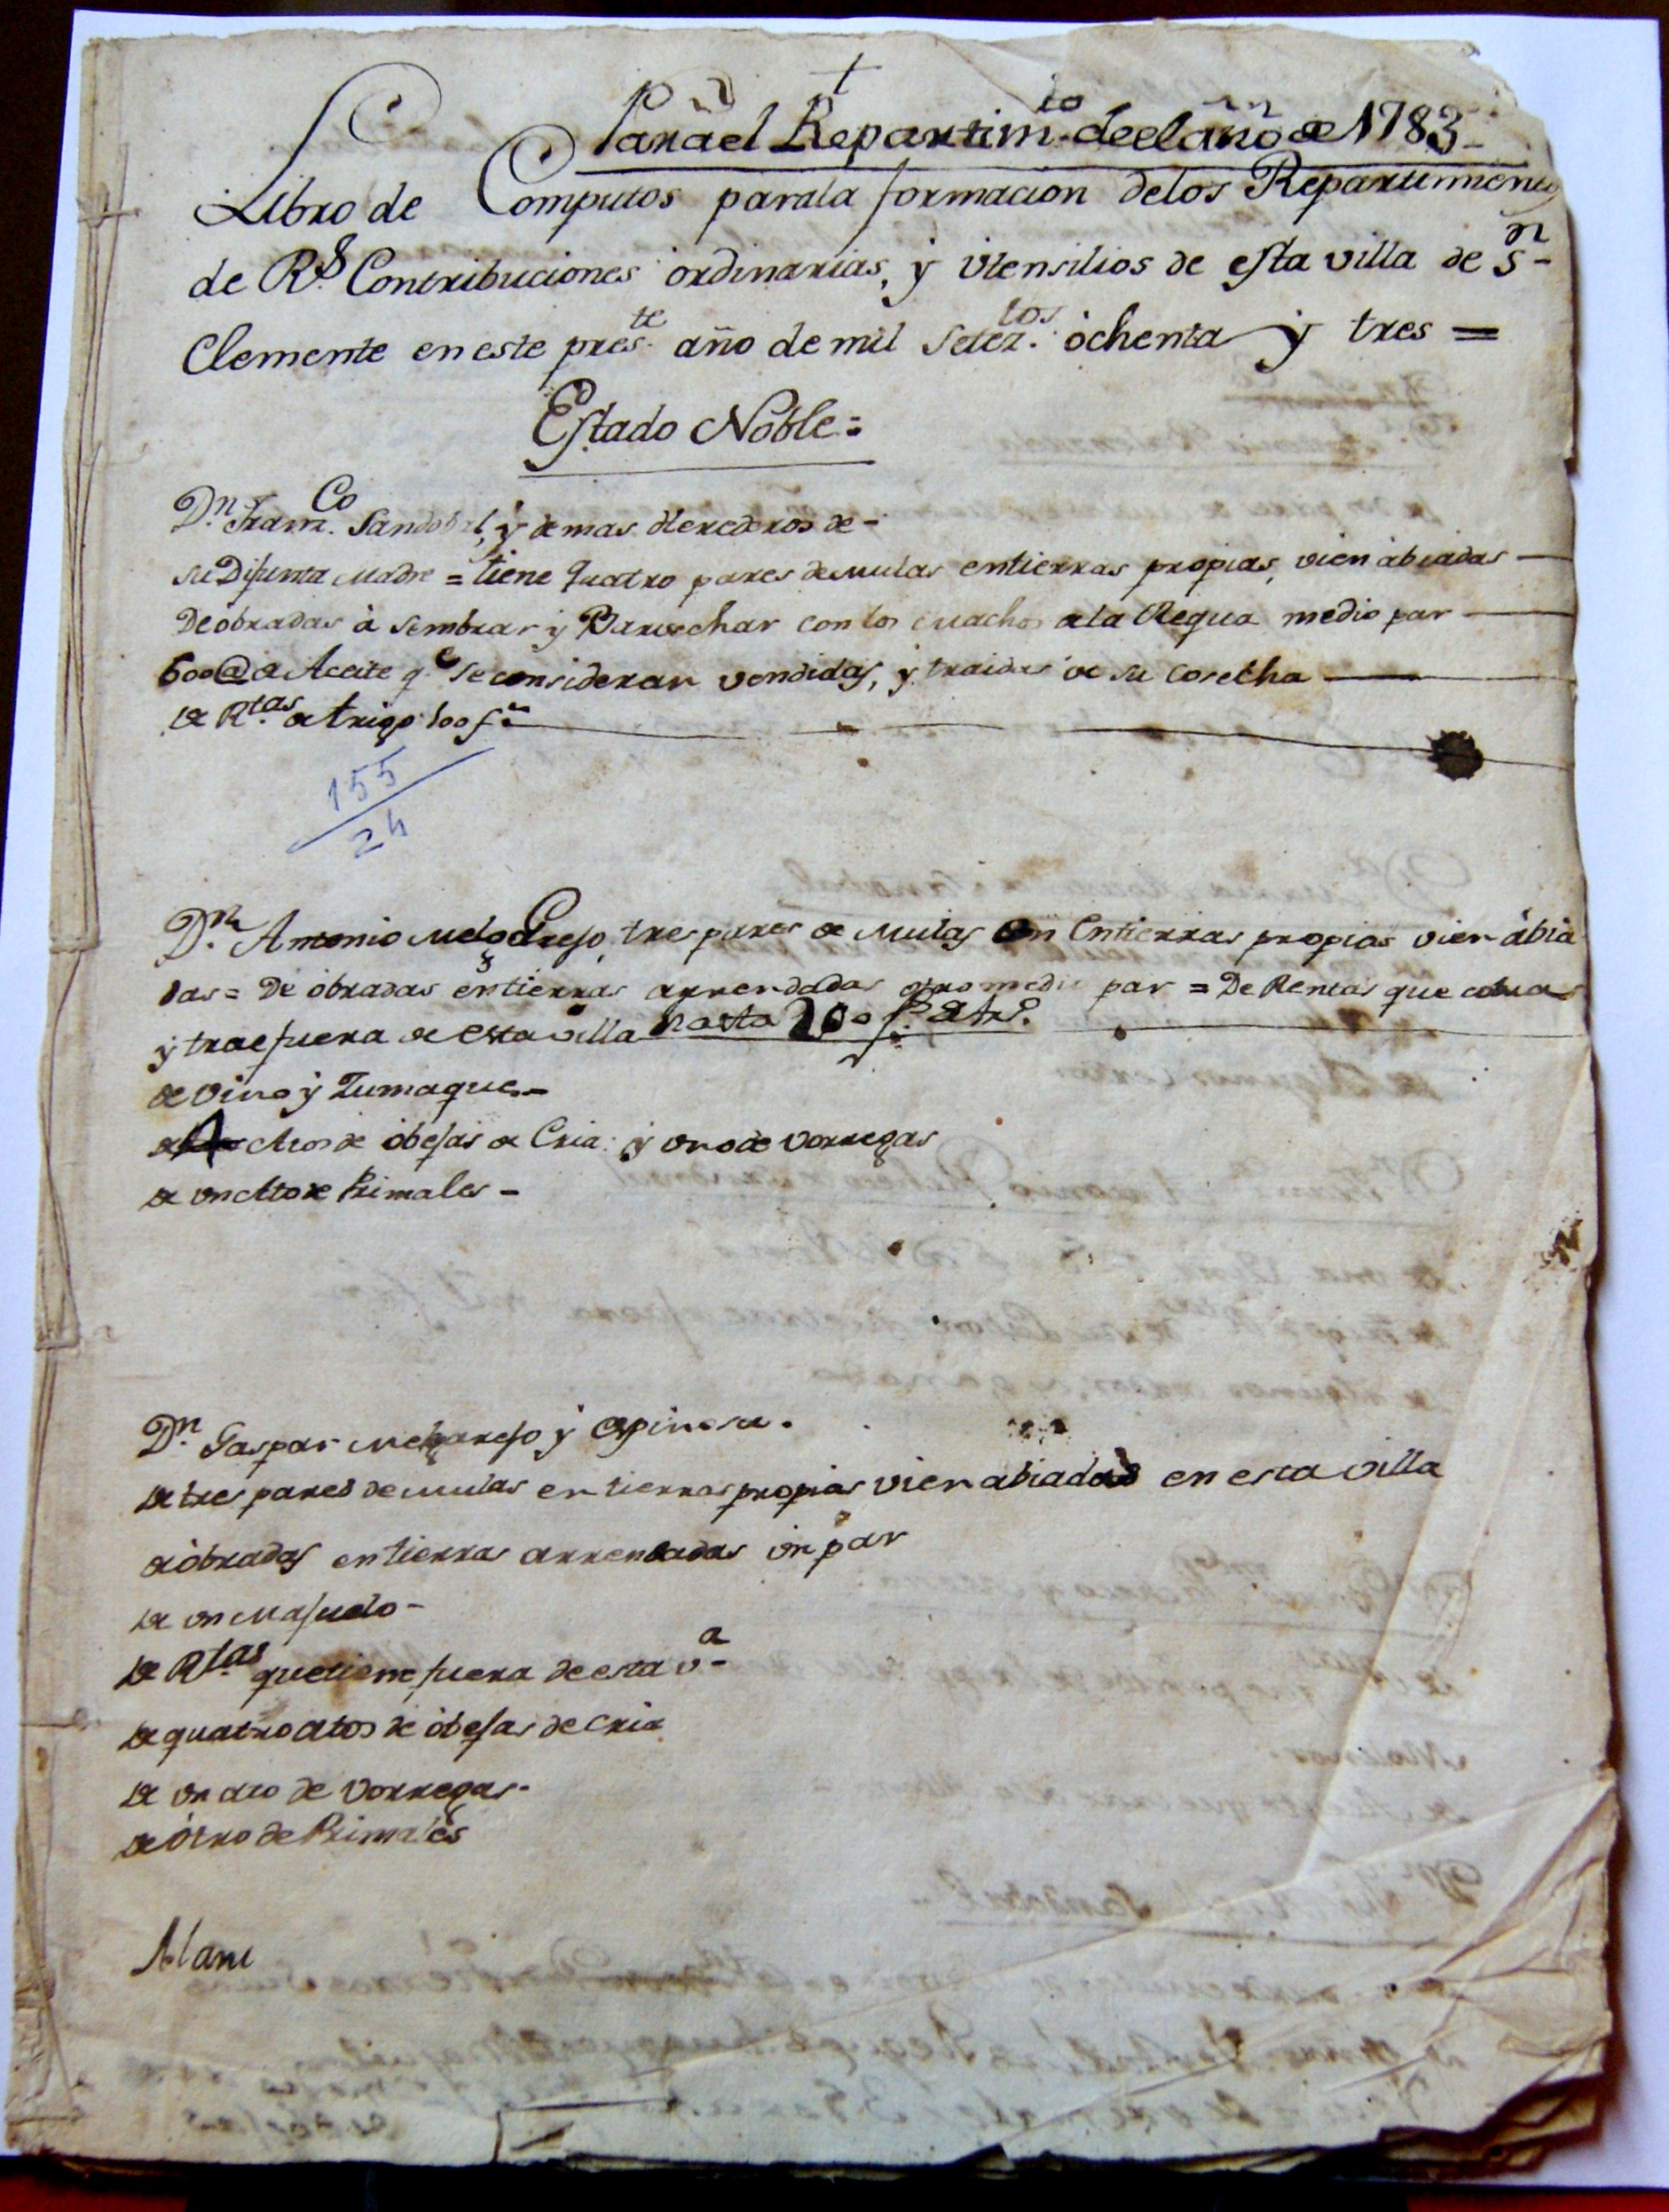 †
Para el Repartim.to de el año de 1783
Libro de Computos para la formacion de los Repartimientos
de R.s Contribuciones ordinarias, y Vtensilios de esta villa de S.n
Clemente en este pres.te año de mil Setez.tos ochenta y tres =
Estado Noble =
D.n Fran.co Sandobal, y demas Herederos de -
su Difunta Madre = tiene quatro pares de mulas en tierras propias, vien abiadas
De obradas à sembrar y Barvechar con los machos de la Requa medio par
600@ de Aceite q.e se consideran vendidas, y traidas de su cosecha
de R.tas de trigo 100 f.s
155
24
D.n Antonio Melgarejo, tres pares de Mulas en tierras propias vien abia
das = De obradas en tierras arrendadas otro medio par = De Rentas que cobra
y trae fuera de esta villa hasta 200 f.s de tr.o
de vino y Zumaque -
de Atos de obejas de Cria y vno de vorregas
de vn Ato de Primales -
D.n Gaspar Melgarejo y Espinosa.
de tres pares de mulas en tierras propias vien abiadas en esta villa
de obradas en tierras arrendadas vn par
de vn Majuelo -
de R.tas que tiene fuera de esta v.a
de quatro atos de obejas de cria
de vn ato de vorregas -
de otro de Primales